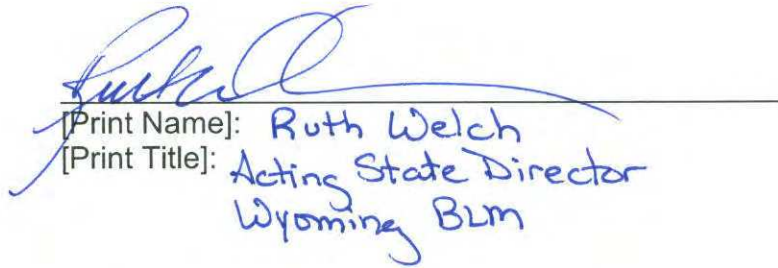 [Print Name]: Ruth Welch
[Print Title]: Acting State Director
Wyoming BLM